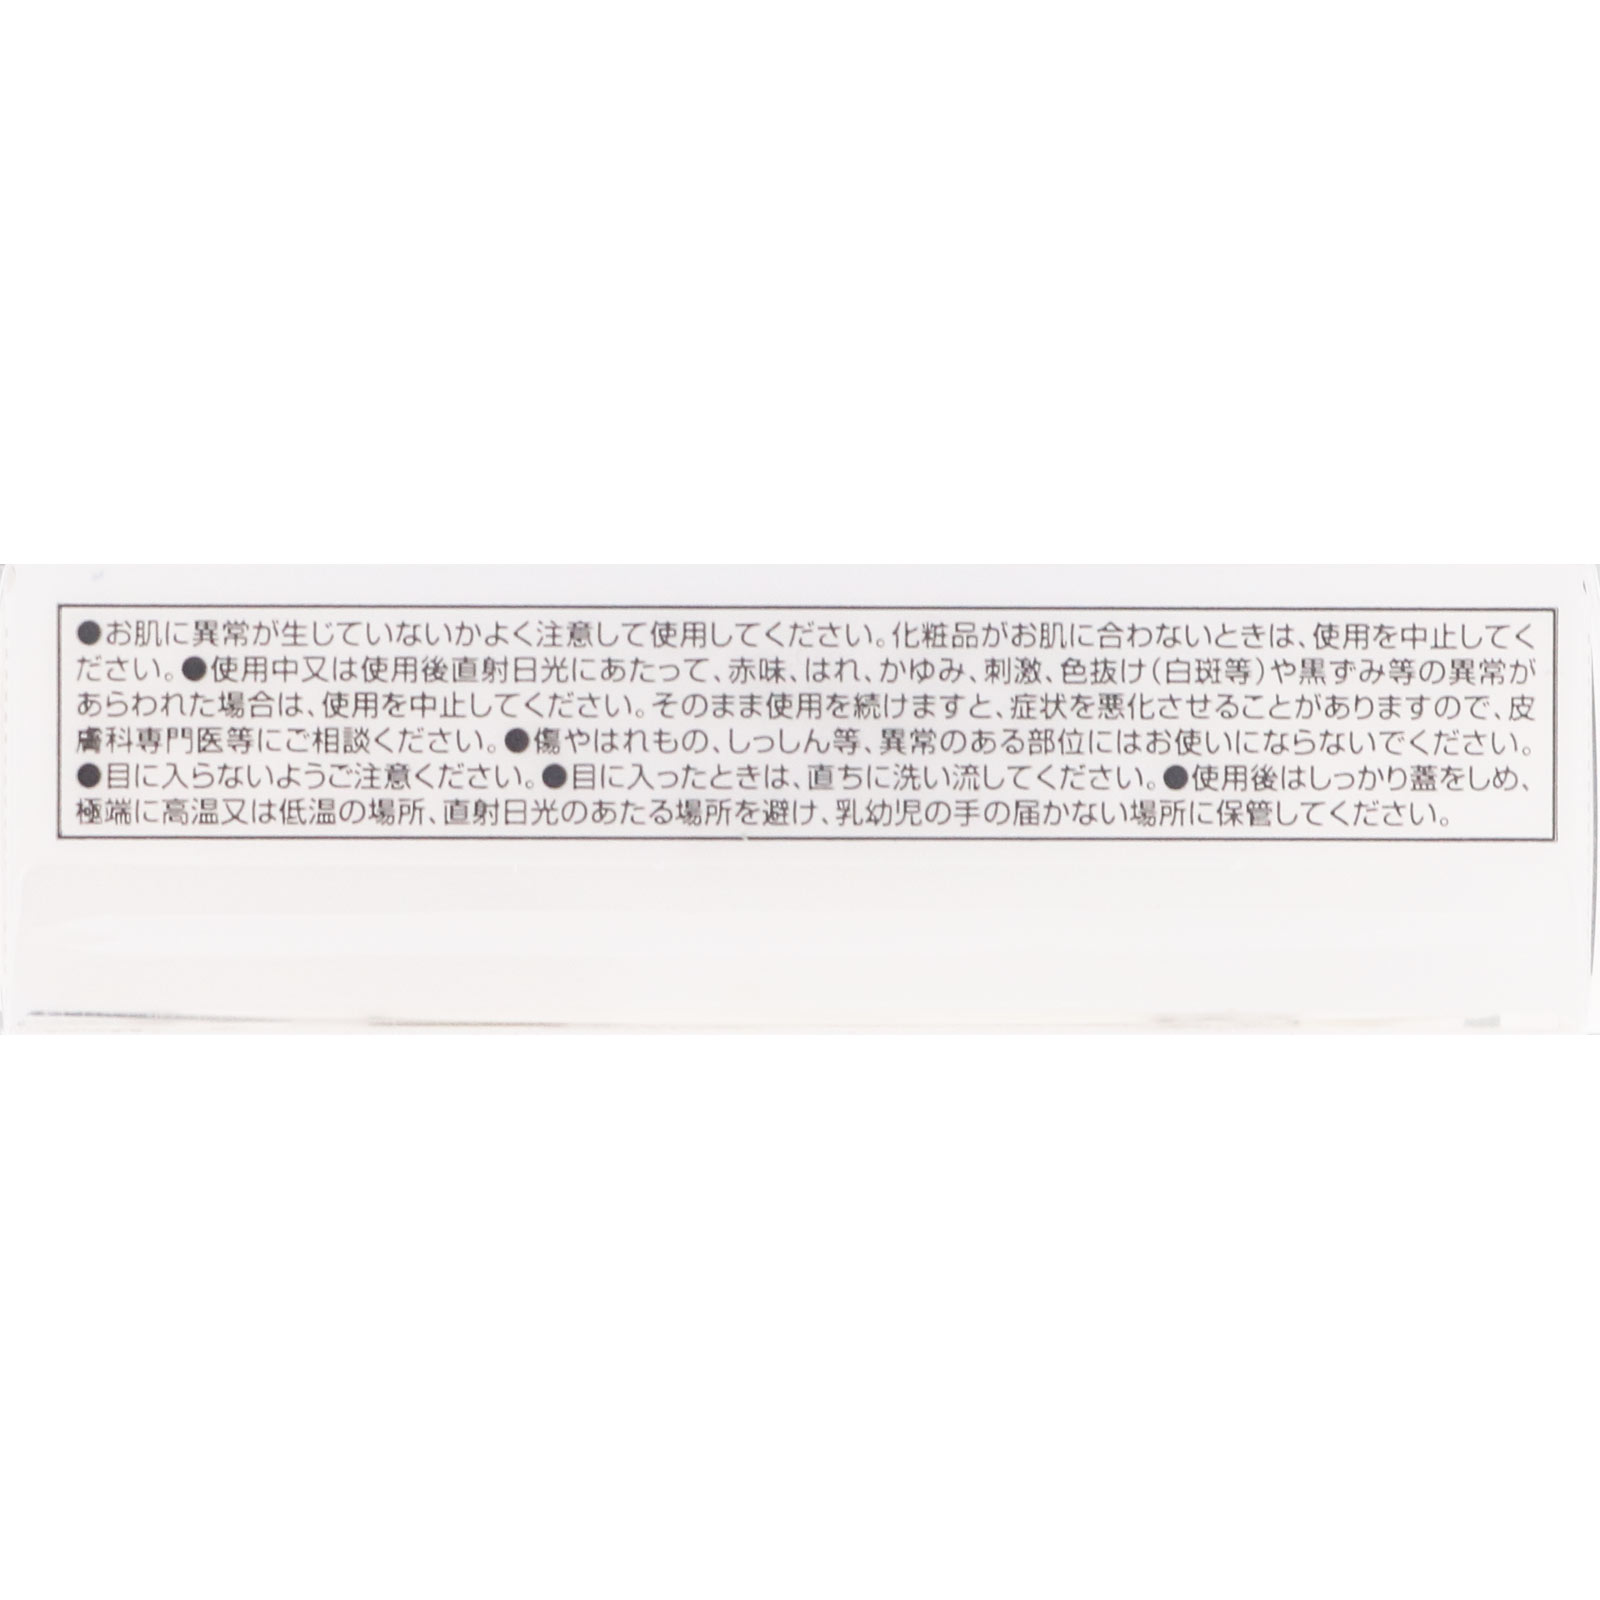 ●お肌に異常が生じていないかよく注意して使用してください。化粧品がお肌に合わないときは、使用を中止してく
ださい。●使用中又は使用後直射日光にあたって、赤味、はれ、かゆみ、刺激、色抜け(白斑等)や黒ずみ等の異常が
あらわれた場合は、使用を中止してください。そのまま使用を続けますと、症状を悪化させることがありますので、皮
膚科専門医等にご相談ください。●傷やはれもの、しっしん等、異常のある部位にはお使いにならないでください。
●目に入らないようご注意ください。●目に入ったときは、直ちに洗い流してください。●使用後はしっかり蓋をしめ、
極端に高温又は低温の場所、直射日光のあたる場所を避け、乳幼児の手の届かない場所に保管してください。